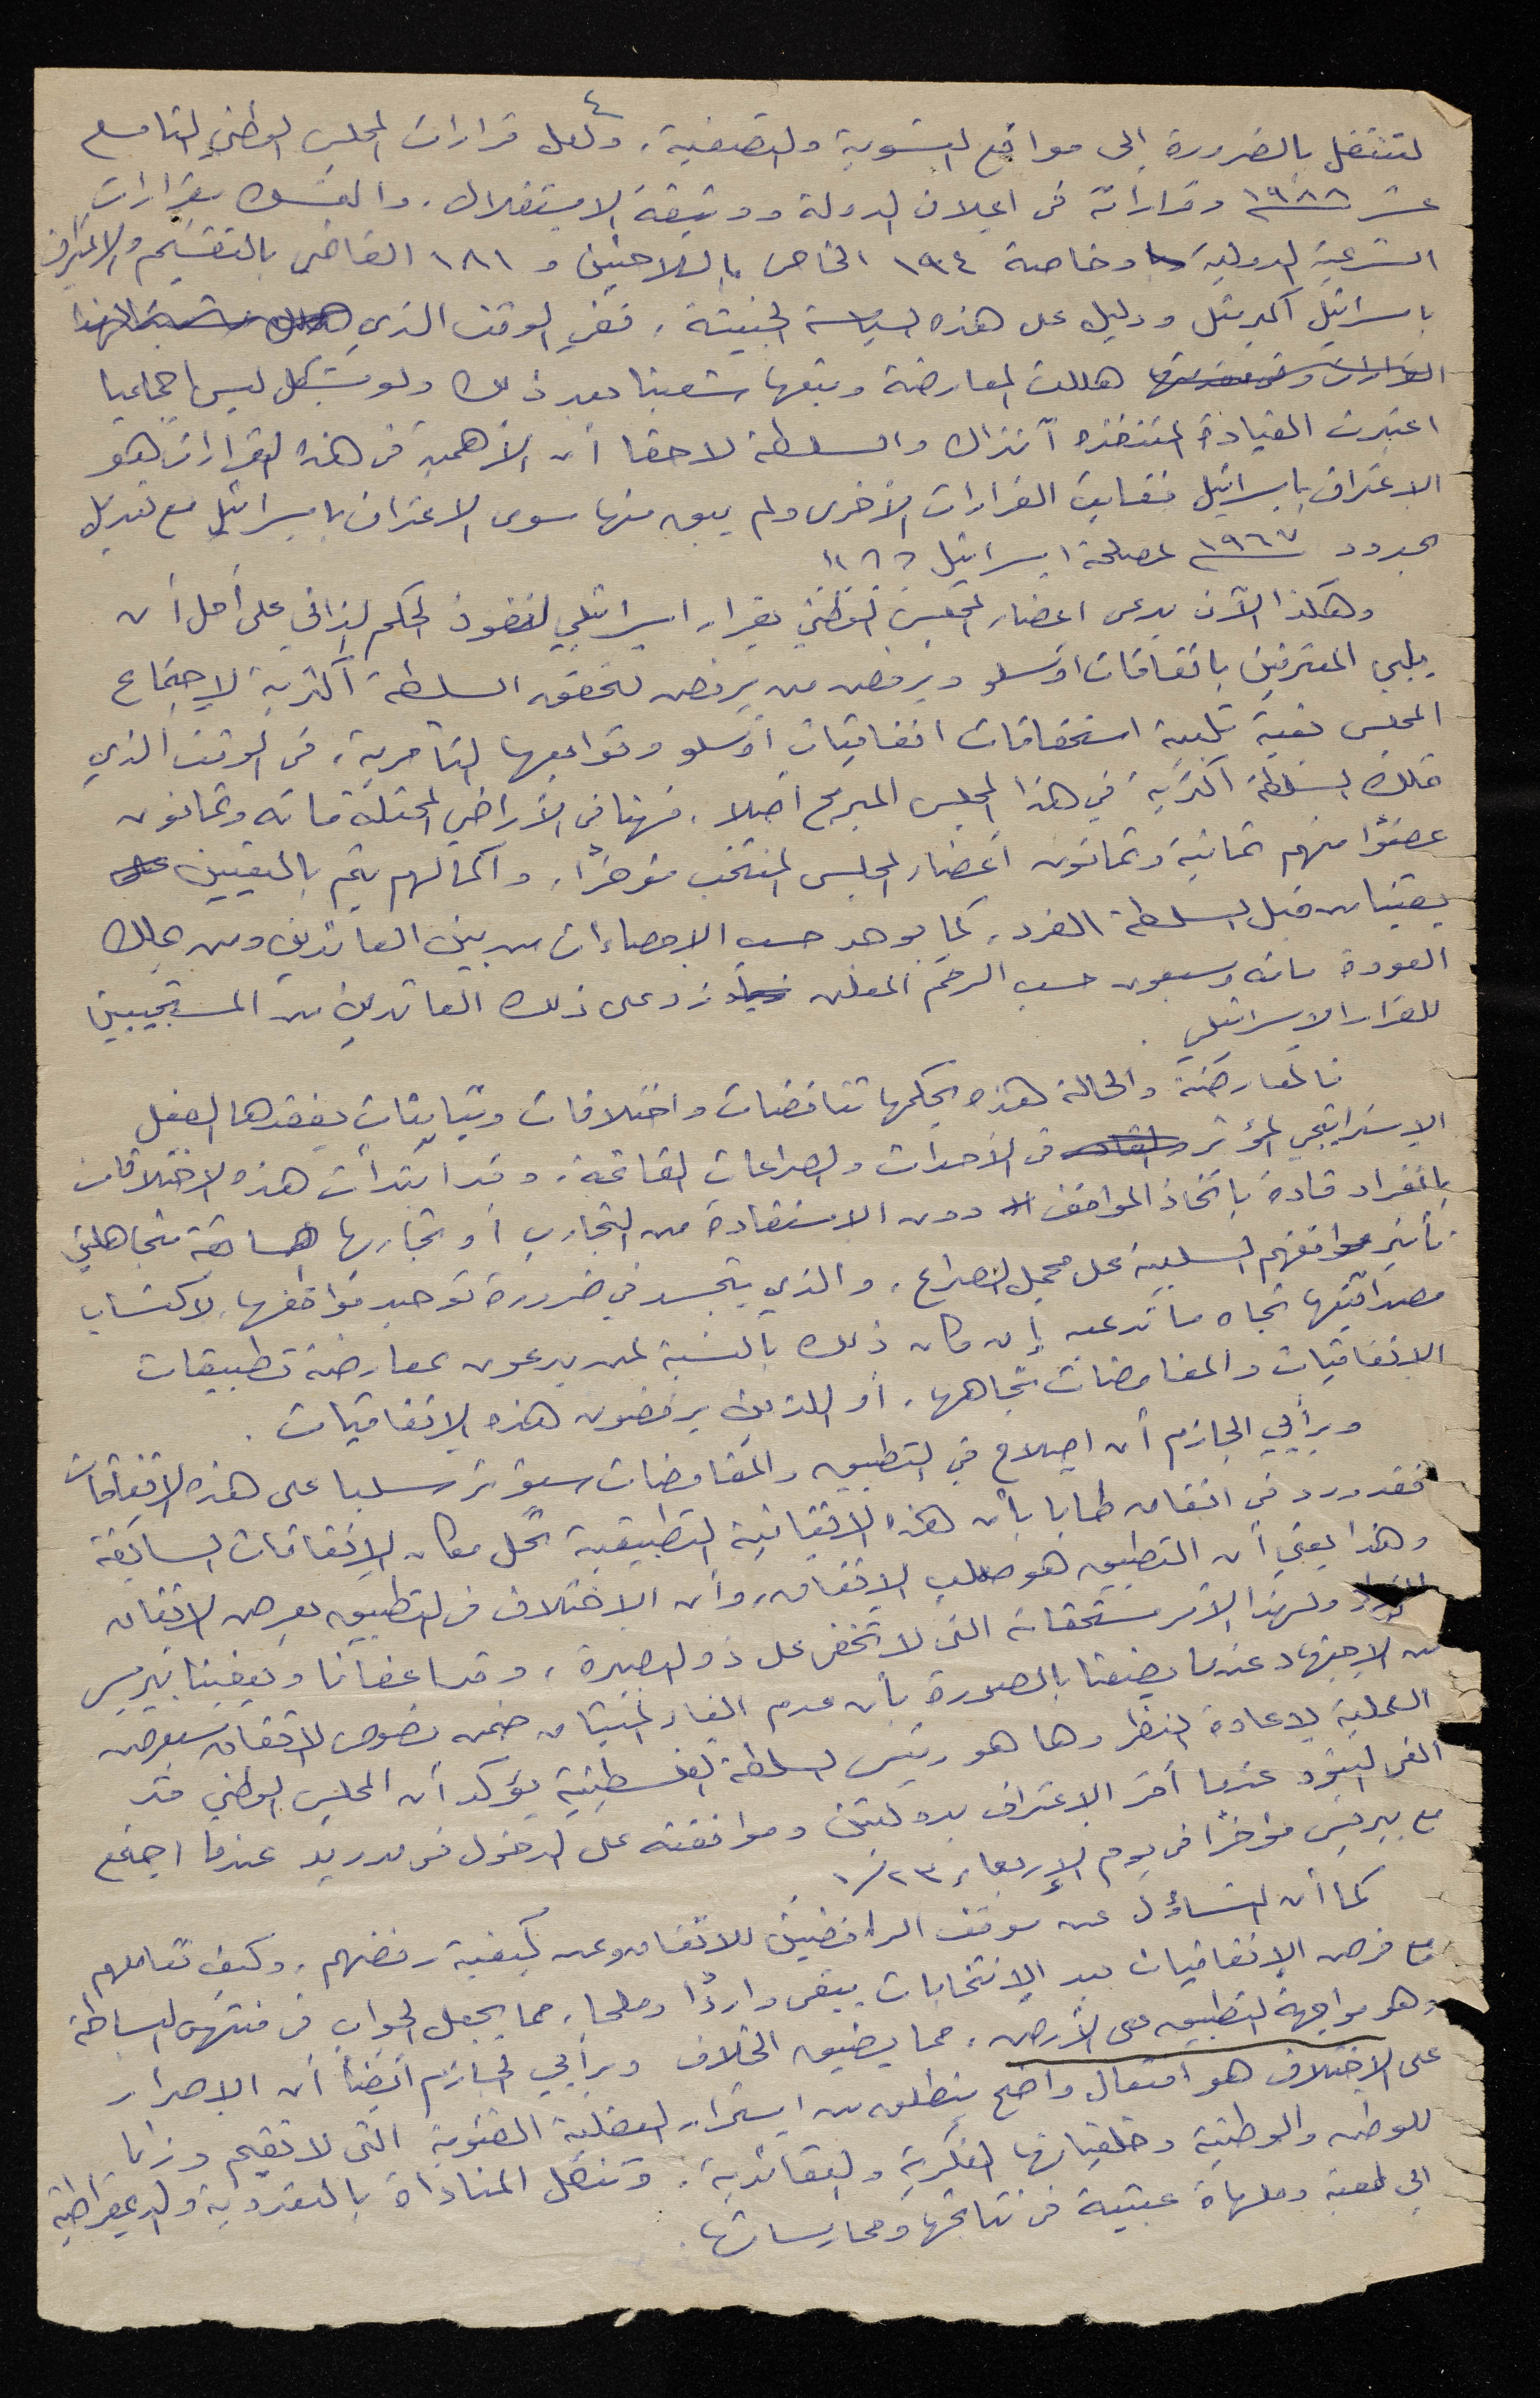 ٤
لتنتقل بالضرورة إلى مواقع التسوية والتصفية، ولعل قرارات المجلس الوطني التاسع
عشر ١٩٨٨ وقراراته في اعلان الدولة ووثيقة الاستقلال، والتمسك بقرارات
الشرعية الدولية وخاصة ١٩٤ الخاص باللاجئين و ١٨١ القاضي بالتقسيم والاعتراف
باسرائيل أكبر مثل ودليل على هذه السياسة الخبيثة، ففي الوقت الذي
هللت المعارضة وبتعها شعبنا بعد ذلك ولو بشكل ليس اجماعيا
اعتبرت القيادة المتنفذه آنذاك والسلطة لاحقا أن الأهمية في هذه القرارات هو
الاعتراف بإسرائيل فغابت القرارات الأخرى ولم يبق منها سوى الاعتراف بإسرائيل مع تعديل
حدود ١٩٦٧ لمصلحة اسرائيل ؟؟ !!
وهكذا الآن يدعى اعضاء المجلس الوطني بقرار اسرائيلي لنفوذ الحكم الذاتي على أمل أن
يلبي المعترفين باتفاقات اوسلو ويرفض من يرفض لتحقق السلطة أكثرية لاجتماع
المجلس بغية تلبية استحقاقات اتفاقيات أوسلو وتوابعها التآمرية، في الوقت الذي
تملك السلطة أكثرية في هذا المجلس المبرمج أصلا، فهنا في الأراضي المحتلة مائه وثمانون
عضوًا منهم ثمانية وثمانون أعضاء المجلس المنتخب مؤخرًا، واكمالهم يتم بالتعيين
يقينيا من قبل السلطة الفرد، كما يوجد حسب الاحصاءات من بين العائدين ومن يملك
العودة مائه وسبعون حسب الرقم المعلن زد على ذلك العائدين من المستجيبين
للقرار الاسرائيلي.
فالمعارضة والحالة هذه يحكمها تناقضات واختلافات وتباينات يفقدها الفعل
الاستراتيجي المؤثر في الأحداث والصراعات القائمة، وقد ابتدأت هذه الاختلافات
بانفراد قادة باتخاذ المواقف دون الاستفادة من التجارب أو تجاربها السابقة متجاهلين
تأثير مواقفهم السلبية على مجمل الصراع، والذي يتجسد في ضرورة توحيد مواقفها، لاكتساب
مصداقيتها تجاه ما تدعيه إن كان ذلك بالنسبة لمن يدعون بمعارضة تطبيقات
الاتفاقيات والمفاوضات تجاهها، أو اللذين يرفضون هذه الاتفاقيات.
وبرأيي الجازم أن اصلاح في التطبيق والمفاوضات سيؤثر سلبا على هذه الاتفاقات
فقد ورد في اتفاق طابا بأن هذه الاتفاقية التطبيقية تحل مكان الاتفاقات السابقة
وهذا يعني أن التطبيق هو صلب الاتفاق، وأن الاختلاف في التطبيق يعرض الاتفاق
ولهذا الأمر مستحقاته التي لا تخفى على ذو البصيرة، وقد اعفانا ويعفينا بيريس
من الاجتهاد عندما يضعنا بالصورة بأن عدم الغاء الميثاق ضمن نصوص الاتفاق سيعرض
العملية لاعادة النظر وها هو رئيس السلطة الفلسطينية يؤكد أن المجلس الوطني قد
الغى البنود عندما أقر الاعتراف بدولتين وموافقته على الدخول في مدريد عندما اجتمع
مع بيريس مؤخرًا في يوم الإربعاء ١/٢٣
كما أن التساؤل عن موقف الرافضين للاتفاق وعن كيفية رفضهم، وكيف تعاملهم
مع فرض الإتفاقيات بعد الإنتخابات يبقى واردًا وملحا، مما يجعل الجواب في منتهى البساطة
وهو مواجهة التطبيق على الأرض، مما يضيق الخلاف وبرأيي الجازم أيضًا أن الاصرار
على الاختلاف هو افتعال واضح ينطلق من استمرار العقلية الفئوية التي لا تقيم وزنا
للوطن والوطنية وخلفياتها الفكرية والعقائدية، وتنقل المناداة بالتعددية والديمقراطية
الى لعبة وملهاة عبثية في نتائجها وممارساتها.